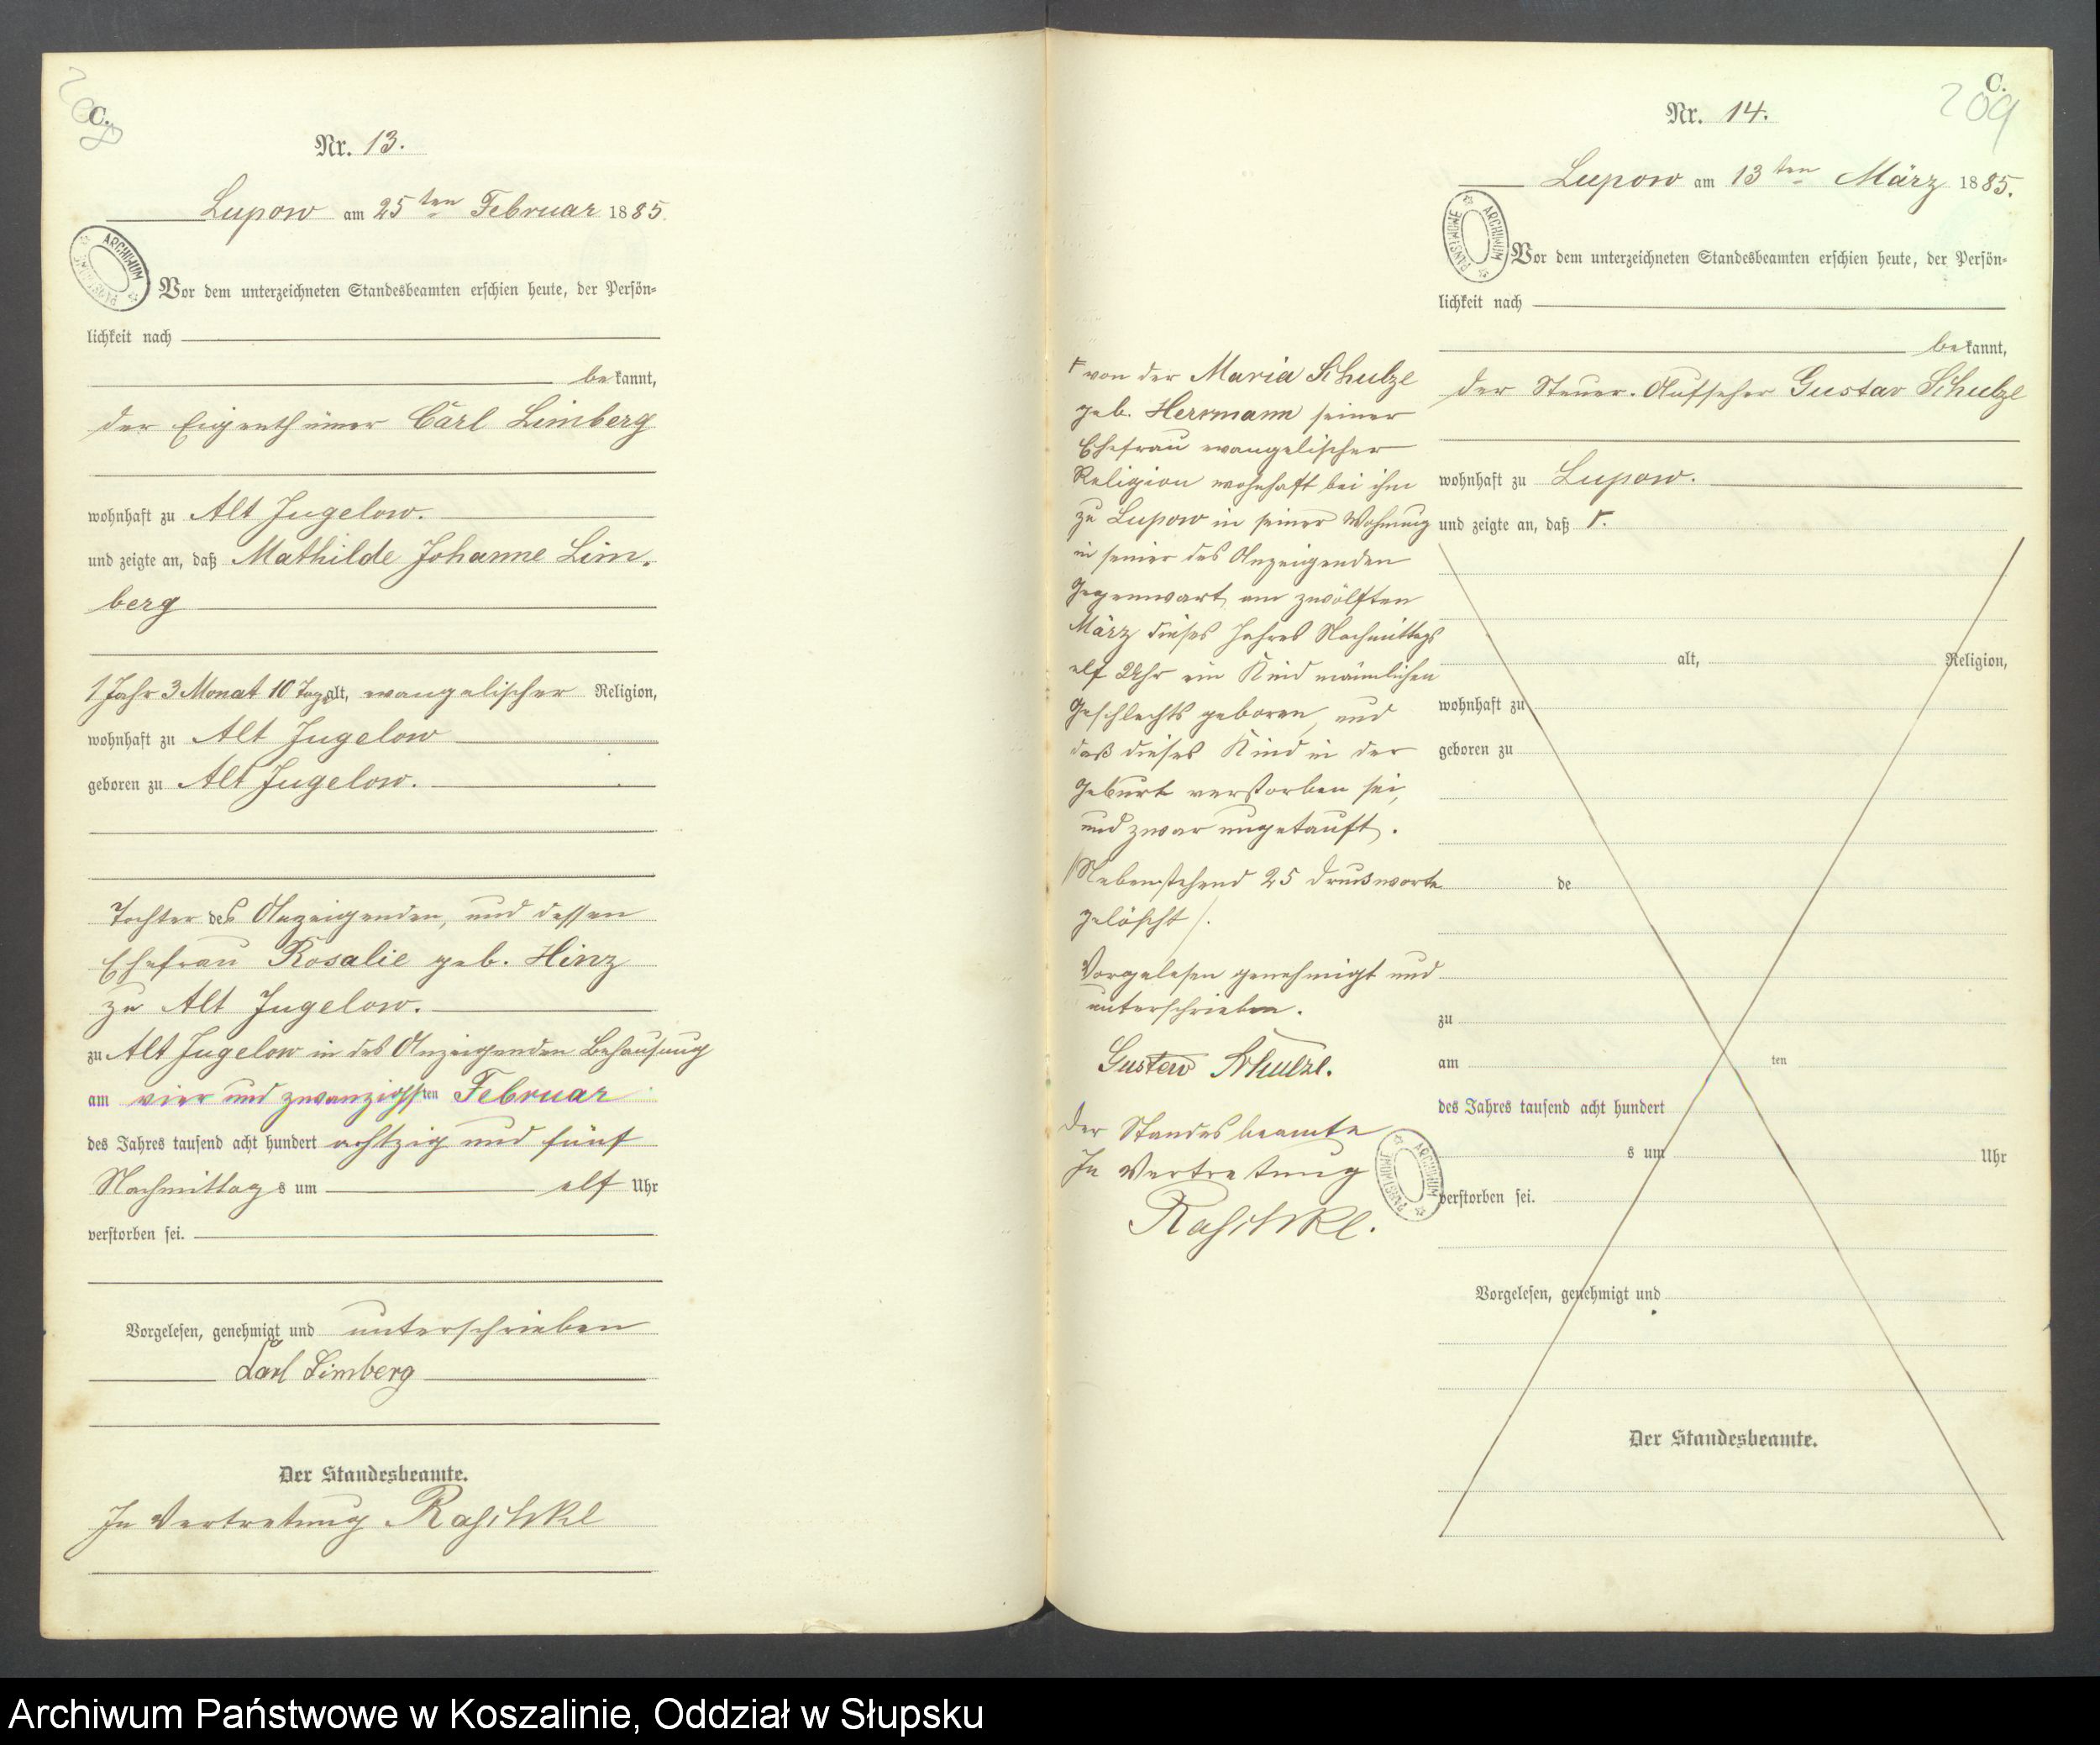 208
C.
Nr. 13.
Lupow am 25ten Februar 1885.
ARCHIWUM PAŃSTWOWE
Vor dem unterzeichneten Standesbeamten erschien heute, der Persön-
lichkeit nach
bekannt,
der Eigenthümer Carl Limberg
wohnhaft zu Alt Jugelow.
und zeigte an, daß Mathilde Johanne Lim-
berg
1 Jahr 3 Monat 10 Tage alt, evangelischer Religion,
wohnhaft zu Alt Jugelow
geboren zu Alt Jugelow.
Tochter des Anzeigenden, und dessen
Ehefrau Rosalie geb. Hinz
zu Alt Jugelow.
zu Alt Jugelow in des Anzeigenden Behausung
am vier und zwanzigsten Februar
des Jahres tausend acht hundert achtzig und fünf
Nachmittags um elf Uhr
verstorben sei.
Vorgelesen, genehmigt und unterschrieben
Carl Limberg
Der Standesbeamte.
In Vertretung Raschke
C.
209
Nr. 14.
Lupow am 13ten März 1885.
ARCHIWUM PAŃSTWOWE
Vor dem unterzeichneten Standesbeamten erschien heute, der Persön-
lichkeit nach
bekannt,
der Steuer-Aufseher Gustav Schulze
wohnhaft zu Lupow.
und zeigte an, daß Γ.
alt, Religion,
wohnhaft zu
geboren zu
de
zu
am ten
des Jahres tausend acht hundert
s um Uhr
verstorben sei.
Vorgelesen, genehmigt und
Der Standesbeamte.
Γ von der Maria Schulze
geb. Herrmann seiner
Ehefrau evangelischer
Religion wohnhaft bei ihm
zu Lupow in seiner Wohnung
in seiner des Anzeigenden
Gegenwart, am zwölften
März dieses Jahres Nachmittags
elf Uhr ein Kind männlichen
Geschlechts geboren, und
daß dieses Kind in der
Geburt verstorben sei,
und zwar ungetauft.
/Nebenstehend 25 Druckworte
gelöscht/.
Vorgelesen genehmigt und
unterschrieben.
Gustav Schulze.
Der Standesbeamte
In Vertretung
Raschke.
ARCHIWUM PAŃSTWOWE
Archiwum Państwowe w Koszalinie, Oddział w Słupsku